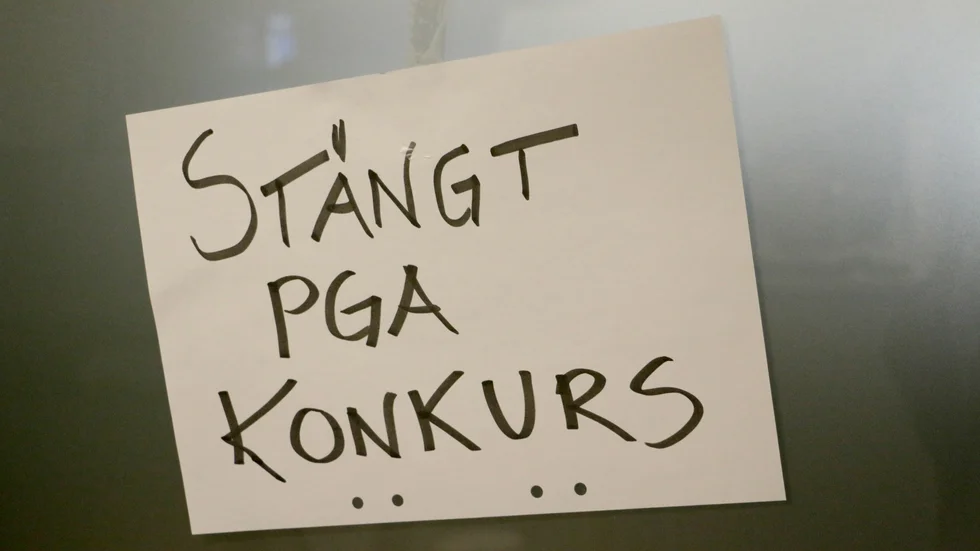 STÄNGT
PGA
KONKURS